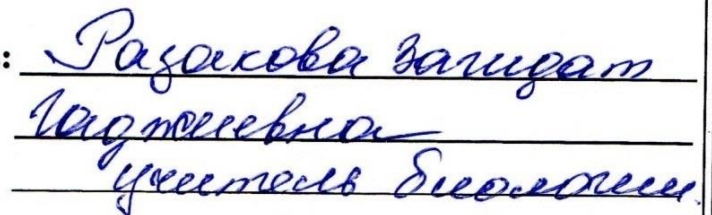 : Разакова Загидат
Гаджиевна
учитель биологии